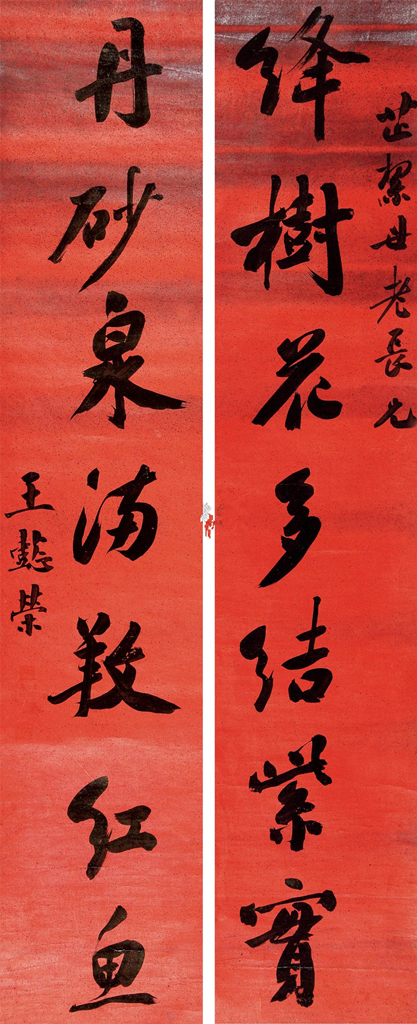 芷絜世老長兄
絳樹花多結紫實
丹砂泉滿養紅魚
王懿榮